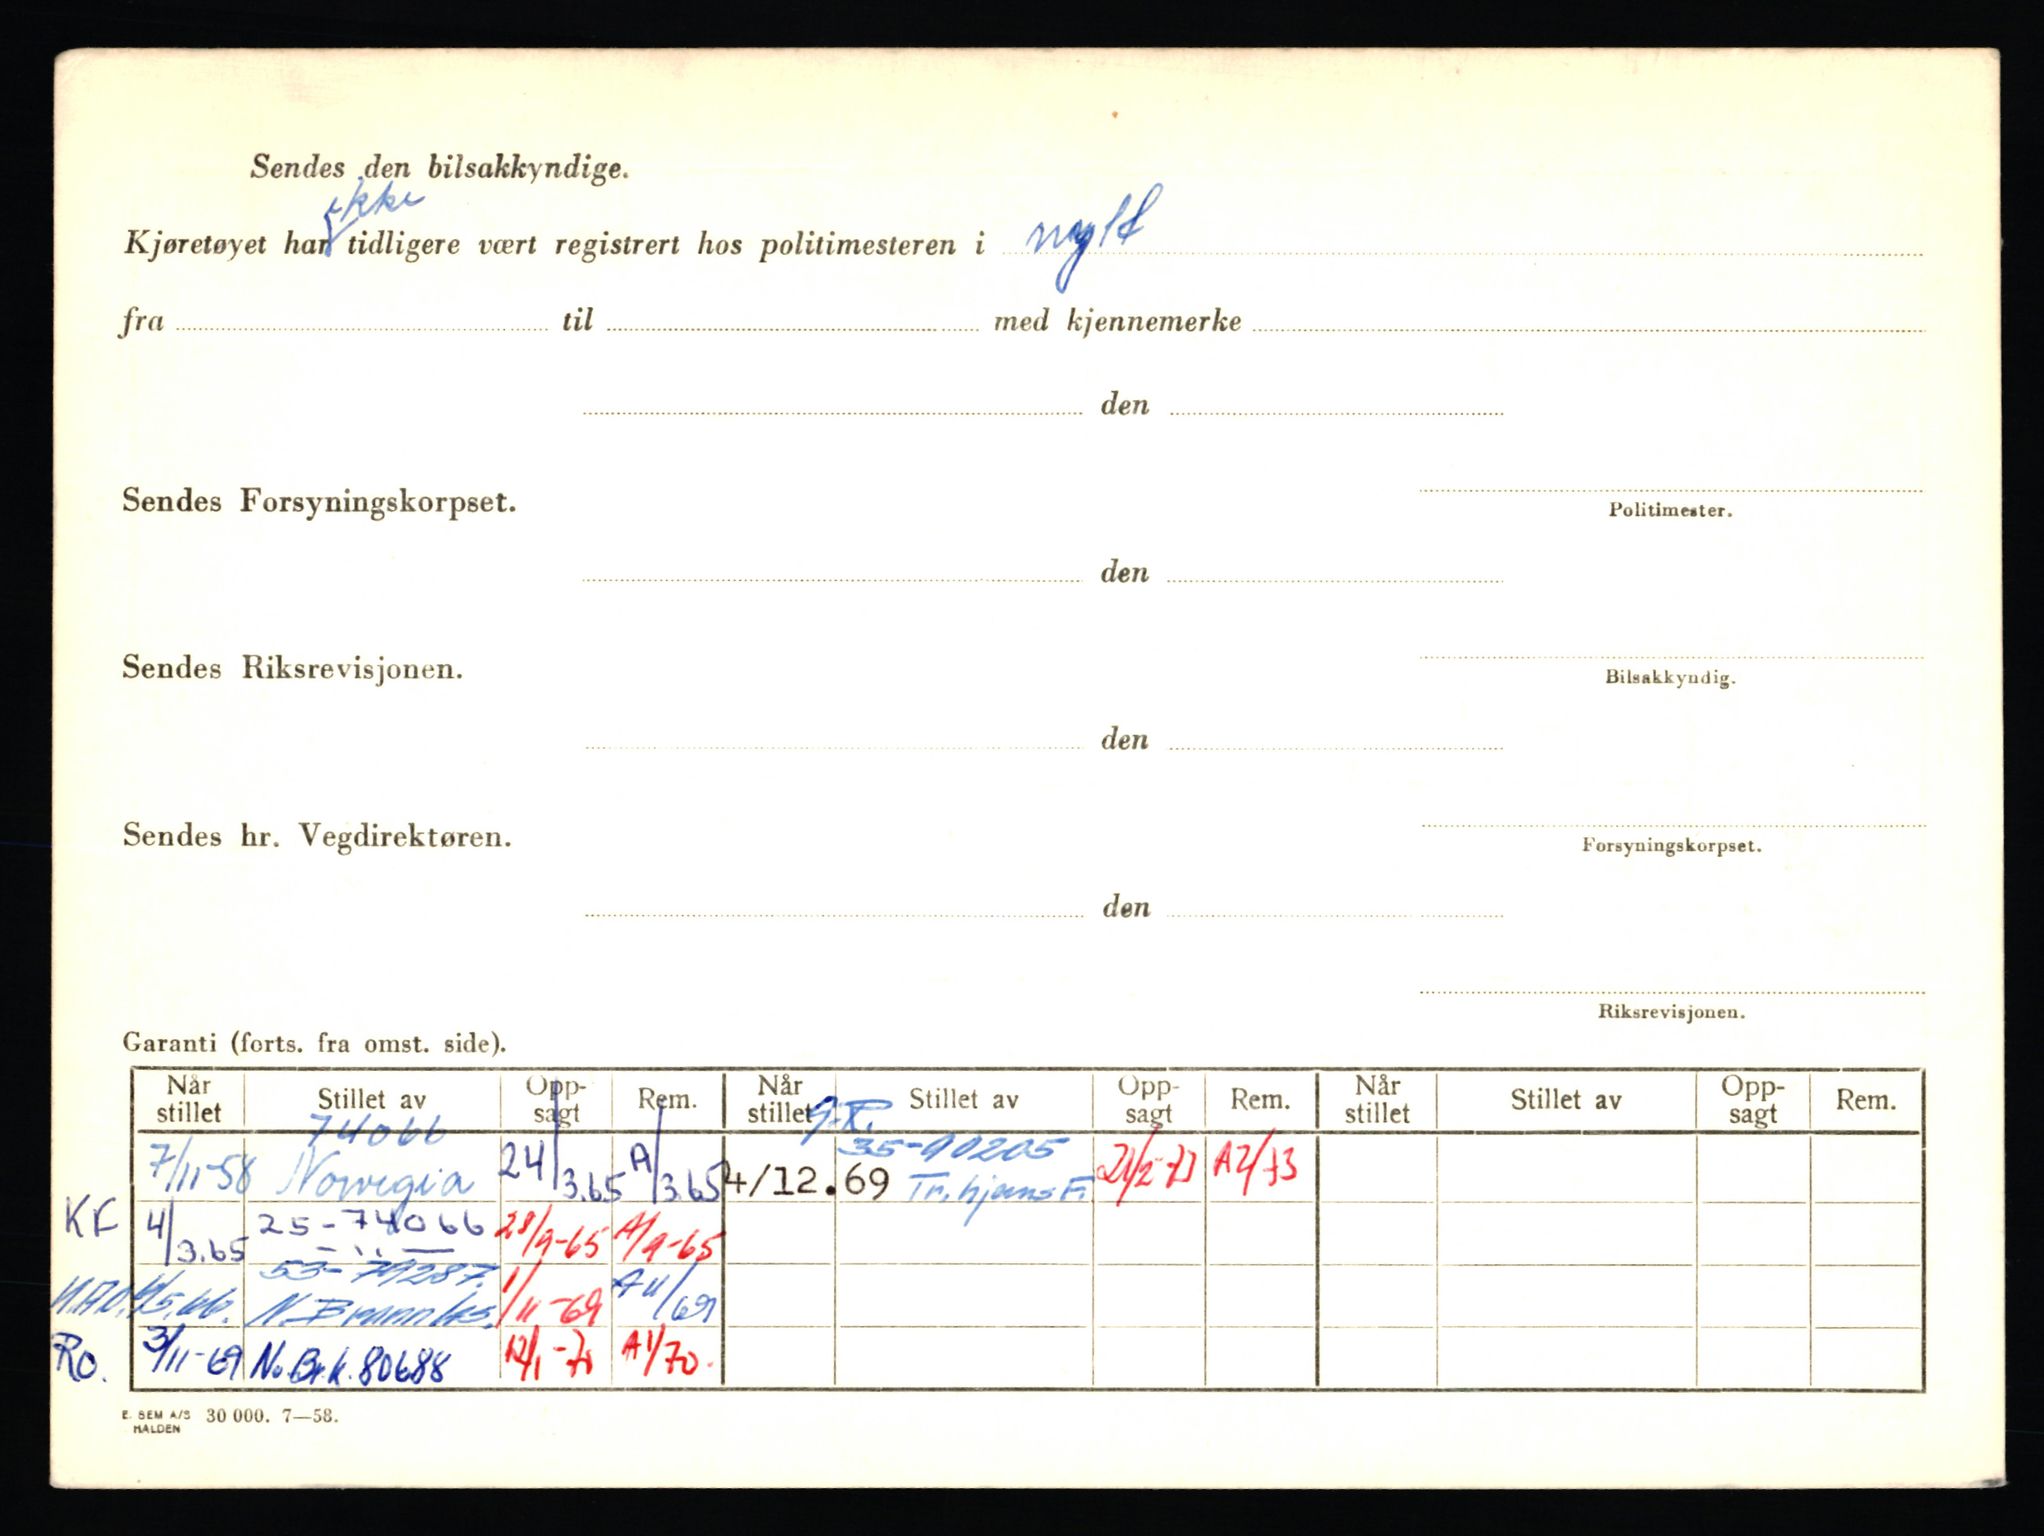 Sendes den bilsakkyndige.
ikke
Kjøretøyet har tidligere vært registrert hos politimesteren i nytt
fra til med kjennemerke
den
Sendes Forsyningskorpset.
Politimester.
den
Sendes Riksrevisjonen.
Bilsakkyndig.
den
Sendes hr. Vegdirektøren.
Forsyningskorpset.
den
Riksrevisjonen.
Garanti (forts. fra omst. side).
Når stillet Stillet av Opp-sagt Rem. Når stillet Stillet av Opp-sagt Rem. Når stillet Stillet av Opp-sagt Rem.
74066 35-90205
7/11-58 Norwegia 24/3.65 A/3.65 4/12.69 Tr.hjems F. 21/2-73 A2/73
KF 4/3.65 25-74066 28/9-65 A/9-65
53-79287.
N. Brannks. 1/11-69 A11/69
Ro. 3/11-69 N.Br.k. 80688 A1/70.
E. SEM A/S 30 000. 7—58.
HALDEN